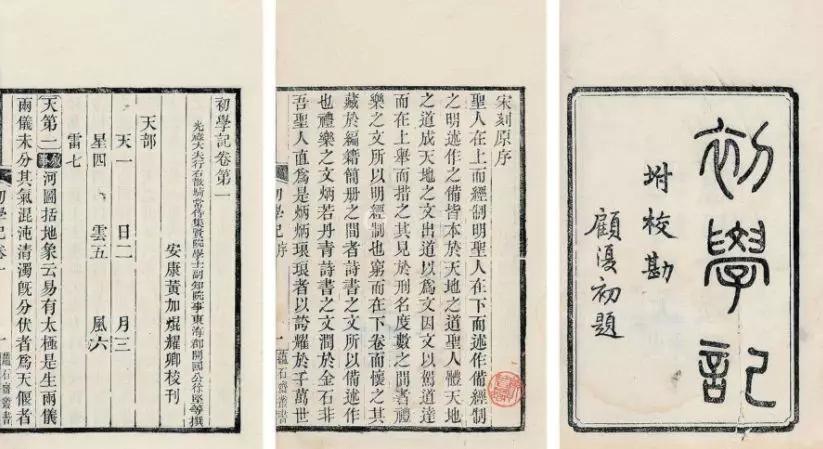 初學記
坿校勘
顧復初題
宋刻原序
聖人在上而經制明聖人在下而述作備經制
之明述作之備皆本於天地之道聖人體天地
之道成天地之文出道以爲文因文以駕道達
而在上舉而措之其見於刑名度數之間者禮
樂之文所以明經制也窮而在下卷而懷之其
藏於編籍簡册之間者詩書之文所以備述作
也禮樂之文炳若丹青詩書之文潤於金石非
吾聖人直爲是炳炳琅琅者以誇耀於千萬世
初學記序 一 蘊石齋叢書
初學記卷第一
光祿大夫行右散騎常侍集賢院學士副知院事東海郡開國公徐堅等撰
安康黃加焜耀卿校刊
天部
天一 日二 月三
星四 雲五 風六
雷七
天第一 敘事 河圖括地象云易有太極是生兩儀
兩儀未分其氣混沌清濁既分伏者爲天偃者
初學記卷一 一 蘊石齋叢書